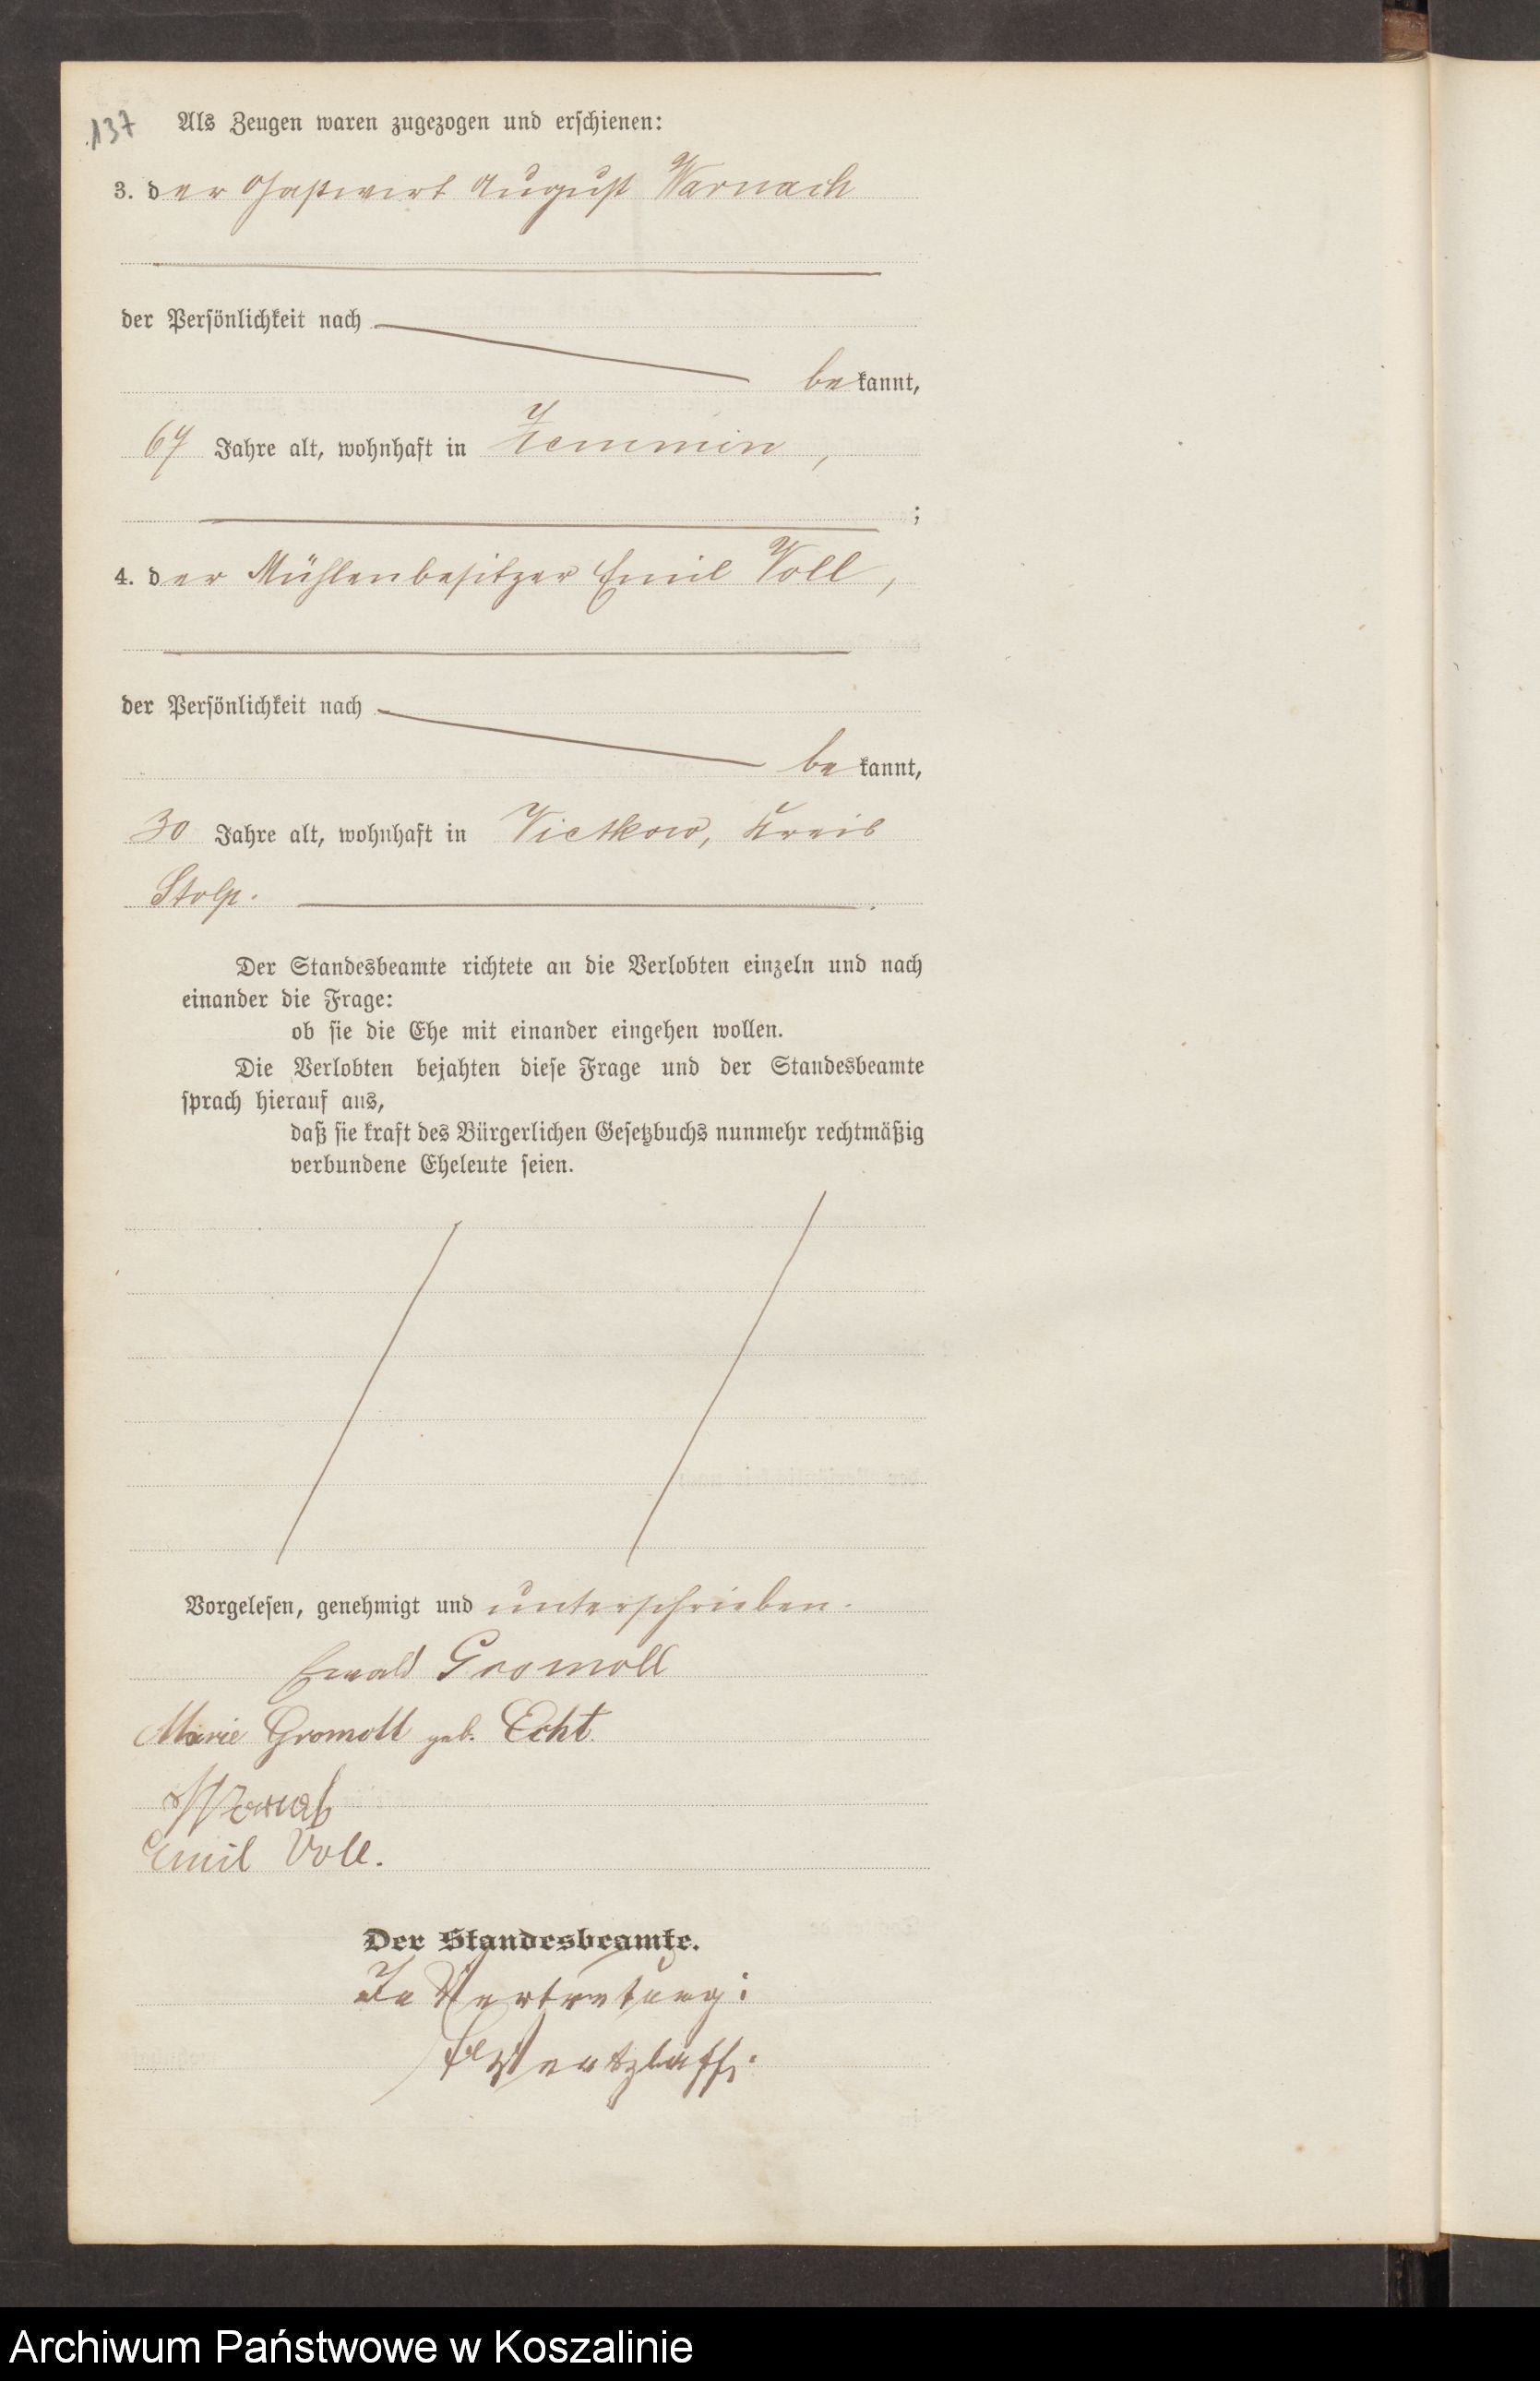 137 Als Zeugen waren zugezogen und erschienen:
3. der Gastwirt August Warnach
der Persönlichkeit nach
bekannt,
67 Jahre alt, wohnhaft in Zemmin,
;
4. der Mühlenbesitzer Emil Voll,
der Persönlichkeit nach
bekannt,
30 Jahre alt, wohnhaft in Vietkow, Kreis
Stolp.
Der Standesbeamte richtete an die Verlobten einzeln und nach
einander die Frage:
ob sie die Ehe mit einander eingehen wollen.
Die Verlobten bejahten diese Frage und der Standesbeamte
sprach hierauf aus,
daß sie kraft des Bürgerlichen Gesetzbuchs nunmehr rechtmäßig
verbundene Eheleute seien.
Vorgelesen, genehmigt und unterschrieben.
Ewald Gromoll
Marie Gromoll geb. Echt.
Emil Voll.
Der Standesbeamte.
In Vertretung:
Archiwum Państwowe w Koszalinie